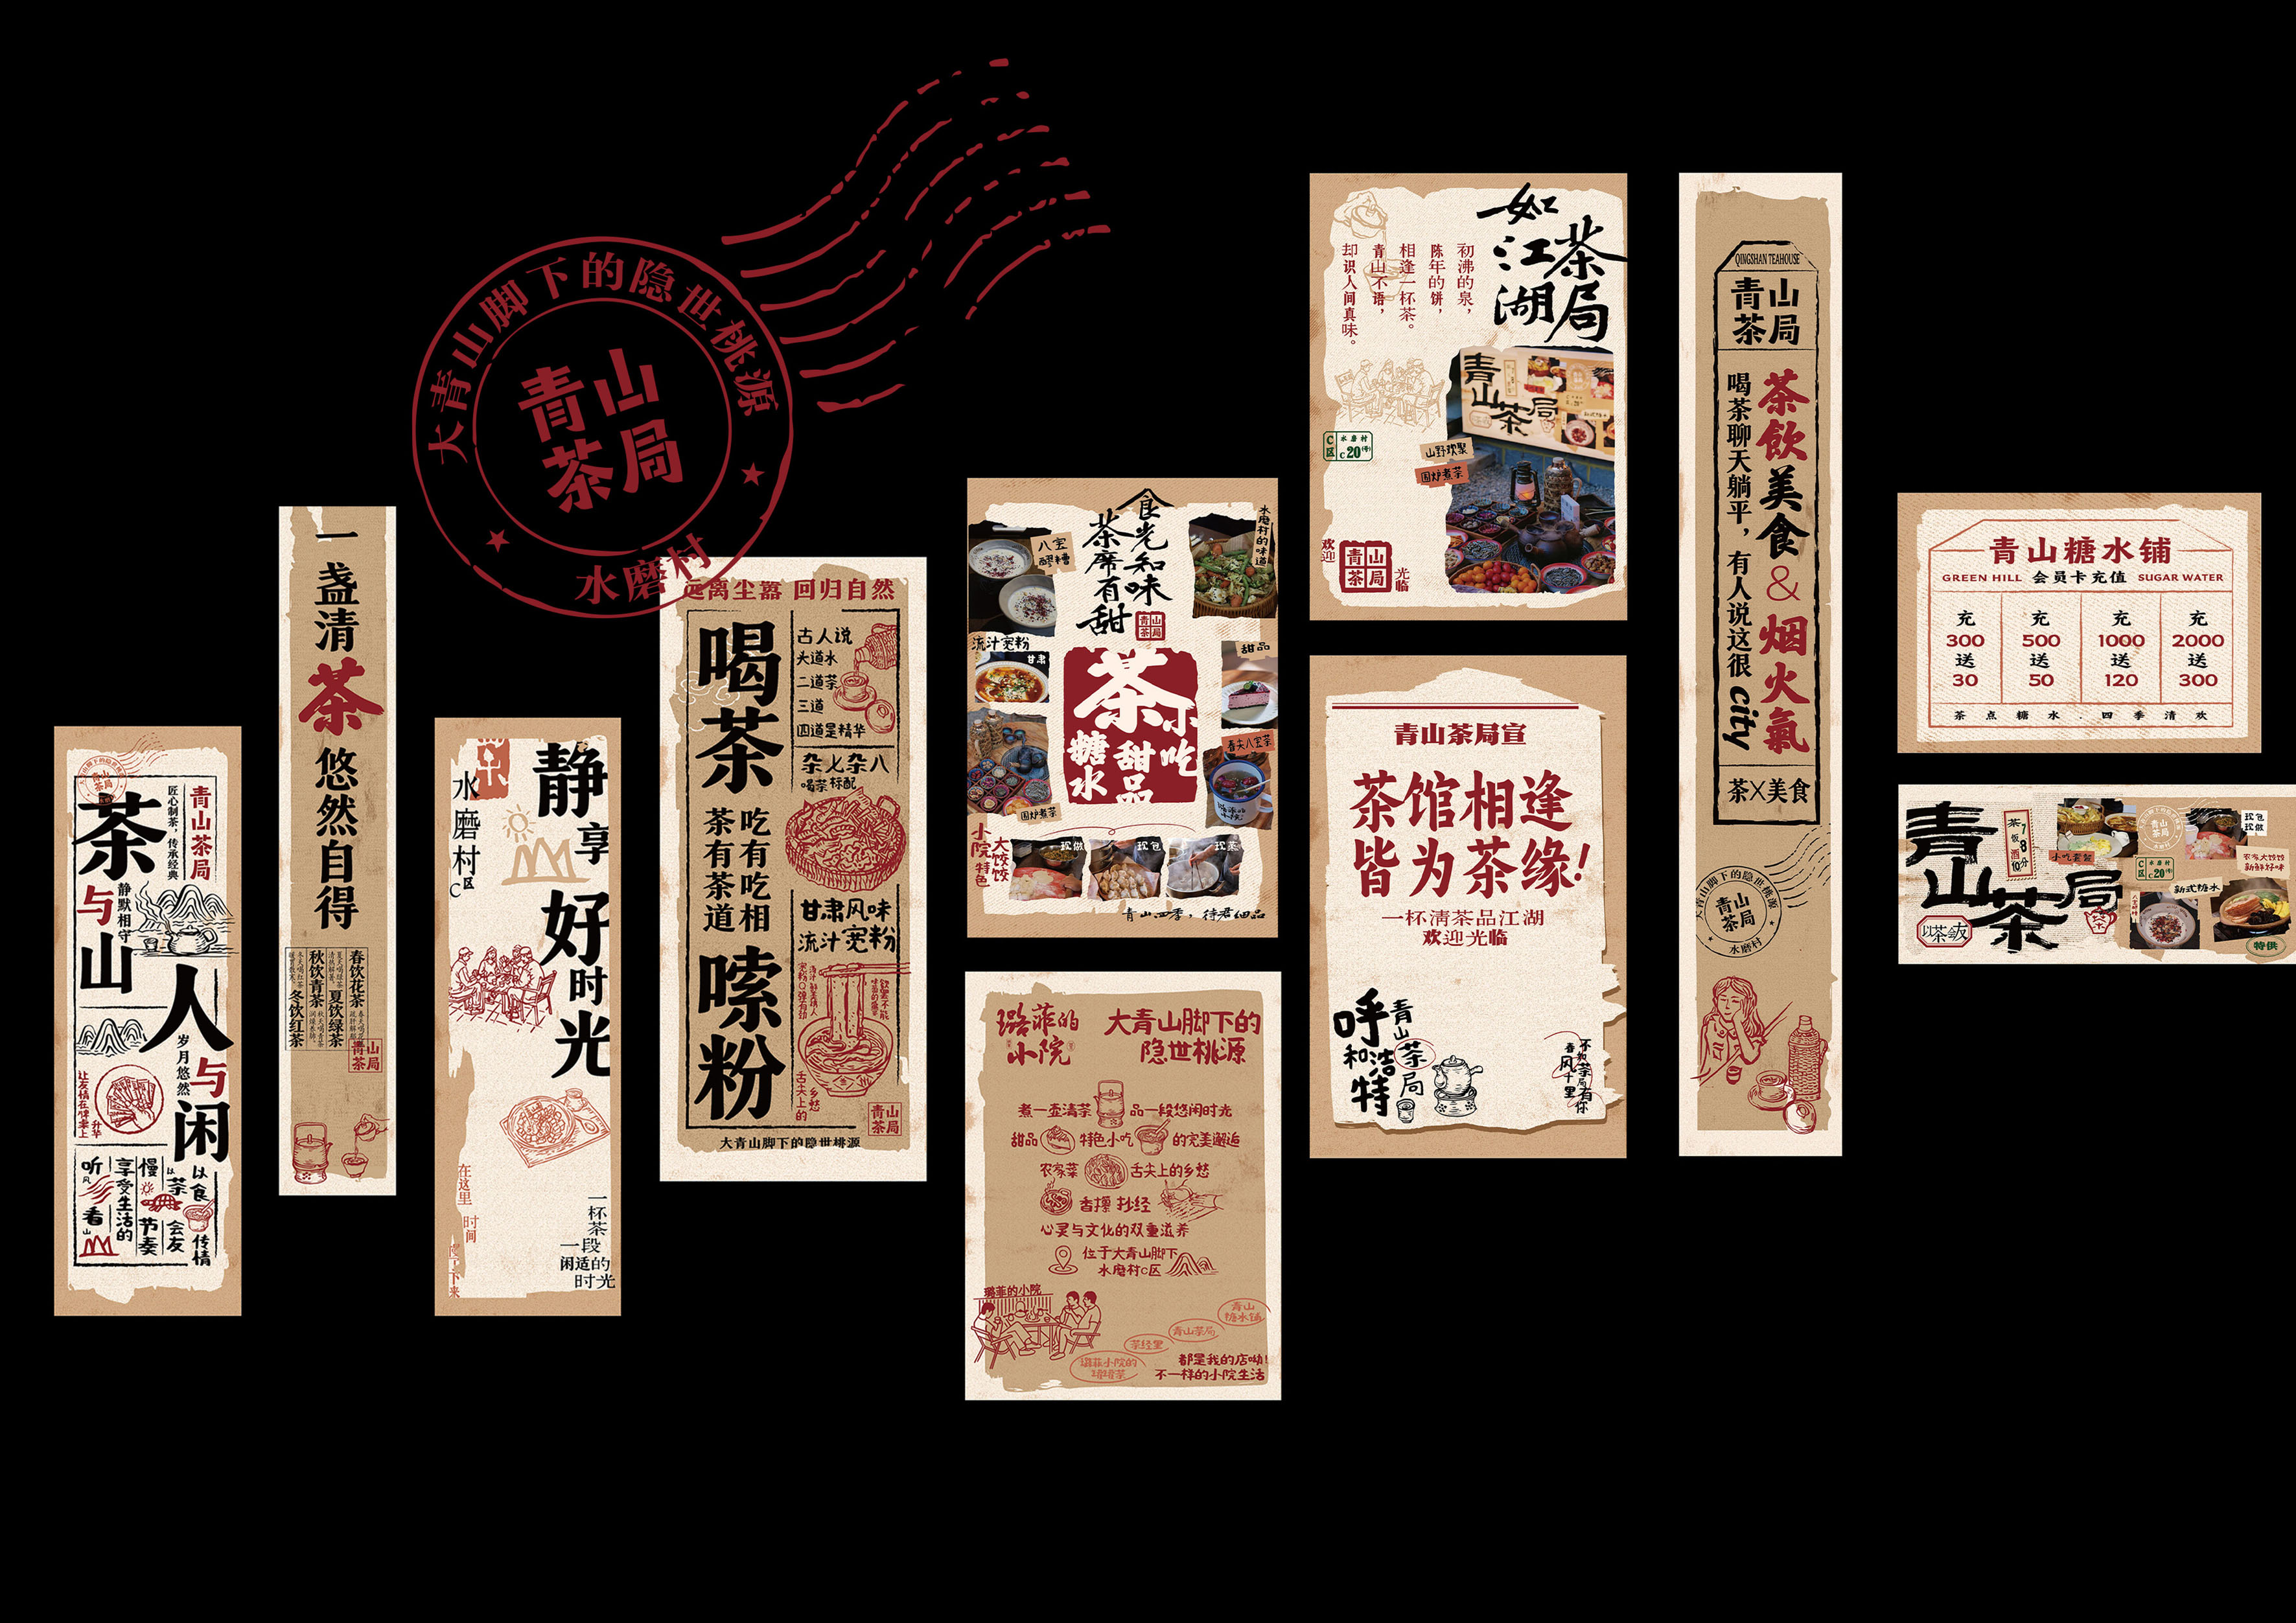 大青山脚下的隐世桃源
青山
茶局
水磨村
青山茶局
匠心制茶，传承经典
茶
与
山
静默相守
人
与
闲
岁月悠然
让友情在牌掌上
升华
听风
看山
享受生活的
慢
节奏
以茶
会友
以食
传情
一盏清茶悠然自得
春饮花茶
夏饮绿茶
秋饮青茶
冬饮红茶
青山
茶局
静享
好时光
水磨村C区
在这里
时间
一杯茶
一段
闲适的
时光
远离尘嚣 回归自然
喝茶
吃有吃相
茶有茶道
嗦粉
古人说
头道水
二道茶
三道
四道是精华
杂七杂八
喝茶标配
甘肃风味
流汁宽粉
舌尖上的
乡愁
青山
茶局
大青山脚下的隐世桃源
食光知味
茶席有甜
青山
茶局
水磨村的味道
八宝
醪糟
流汁宽粉
甘肃
甜品
茶
小吃
甜品
糖水
春尖八宝茶
围炉煮茶
小院特色
大饺饺
现做
现包
现蒸
青山四季，待君细品
璐菲的
小院
大青山脚下的
隐世桃源
煮一壶清茶 品一段悠闲时光
甜品 特色小吃 的完美邂逅
农家菜 舌尖上的乡愁
香擦 抄经
心灵与文化的双重滋养
位于大青山脚下
水磨村C区
璐菲的小院
青山
糖水铺
青山茶局
茶经里
璐菲小院的
罐罐茶
都是我的店呦!
不一样的小院生活
茶局
如江湖
初沸的泉，
陈年的饼，
相逢一杯茶。
青山不语，
却识人间真味。
青山茶局
C区
水磨村
C20(号)
山野欢聚
围炉煮茶
欢迎
青山
茶局
光临
青山茶局宣
茶馆相逢
皆为茶缘!
一杯清茶品江湖
欢迎光临
呼和浩特
青山茶局
春风十里
不如茶局有你
QINGSHAN TEAHOUSE
青山
茶局
茶飲美食&烟火氣
喝茶聊天躺平，有人说这很city
茶X美食
大青山脚下的隐世桃源
青山
茶局
水磨村
青山糖水铺
GREEN HILL 会员卡充值 SUGAR WATER
充 充 充 充
300 500 1000 2000
送 送 送 送
30 50 120 300
茶点糖水.四季清欢
青山茶局
以茶会友
茶7
饭8分
酒10
小吃套餐
C区
水磨村
C20(号)
新式糖水
现包
现做
农家大饺饺
新鲜好味
特供